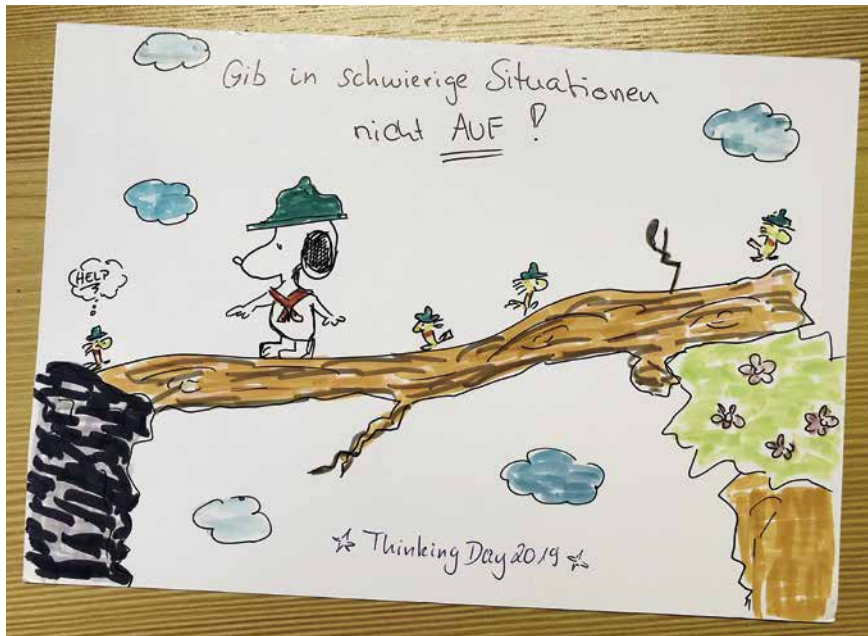 Gib in schwierige Situationen
nicht AUF !
HELP
Thinking Day 2019